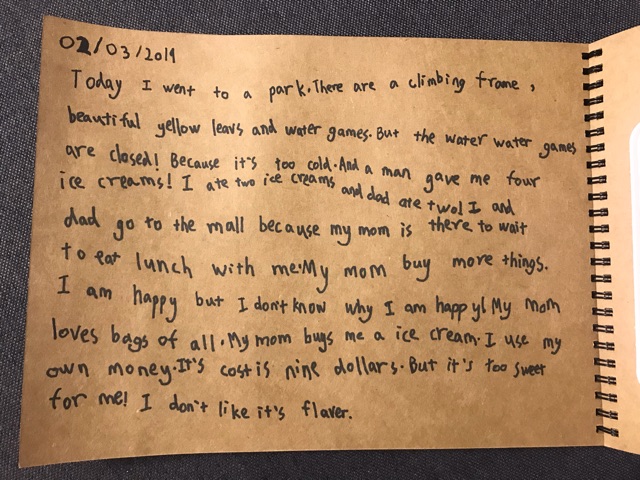 02/03/2019
Today I went to a park. There are a climbing frame,
beautiful yellow leavs and water games. But the water water games
are closed! Because it's too cold. And a man gave me four
ice creams! I ate two ice creams and dad ate two! I and
dad go to the mall because my mom is there to wait
to eat lunch with me. My mom buy more things.
I am happy but I don't know why I am happy! My mom
loves bags of all. My mom buys me a ice cream. I use my
own money. It's cost is nine dollars. But it's too sweet
for me! I don't like it's flaver.